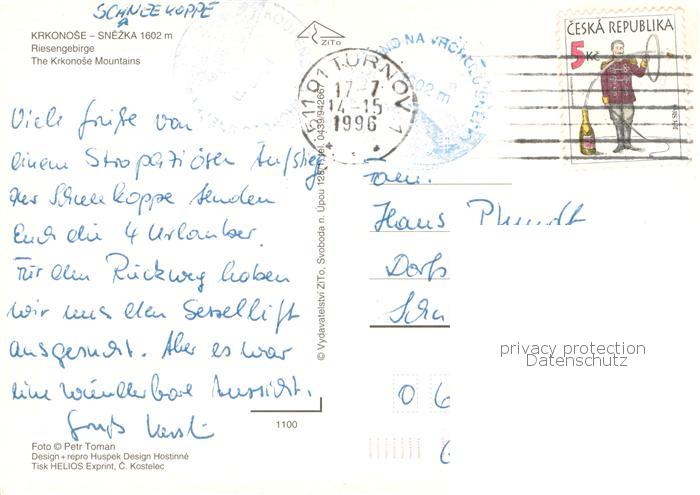 SCHNEEKOPPE
KRKONOŠE – SNĚŽKA 1602 m
Riesengebirge
The Krkonoše Mountains
Viele Grüße von
einem Strapaziösen Aufstieg
der Schneekoppe senden
Euch die 4 Urlauber.
Für den Rückweg haben
wir uns den Sessellift
ausgesucht. Aber es war
eine wunderbare Aussicht.
Gruß
Foto © Petr Toman
Design + repro Huspek Design Hostinné
Tisk HELIOS Exprint, Č. Kostelec
ZiTo
© Vydavatelství ZiTo, Svoboda n. Upou 128, tel. 0439/942667
1100
511 01 TURNOV 1
17-7
14-15
1996
NA VRCHOLU
1602 m
ČESKÁ REPUBLIKA
5 Kč
Fam.
Hans
Dorfs
Schu
0 6
privacy protection
Datenschutz